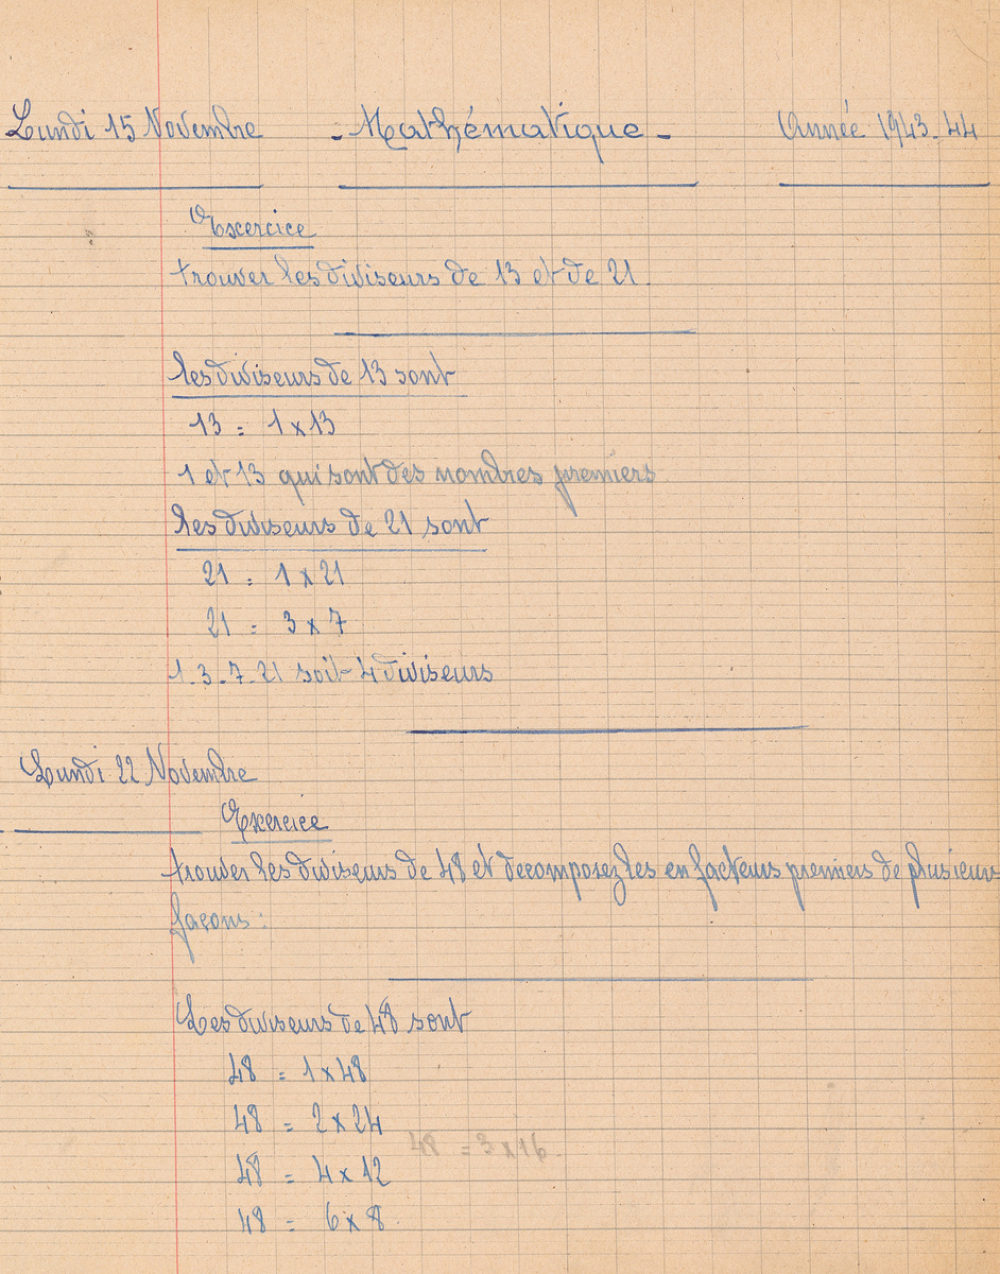 Lundi 15 Novembre - Mathématique - Année 1943-44
Exercice
trouver les diviseurs de 13 et de 21.
les diviseurs de 13 sont
13 = 1 x 13
1 et 13 qui sont des nombres premiers
les diviseurs de 21 sont
21 = 1 x 21
21 = 3 x 7
1.3.7.21 soit 4 diviseurs
Lundi 22 Novembre
Exercice
trouver les diviseurs de 48 et decomposez les en facteurs premiers de plusieurs
façons :
Les diviseurs de 48 sont
48 = 1 x 48
48 = 2 x 24
48 = 3 x 16.
48 = 4 x 12
48 = 6 x 8.